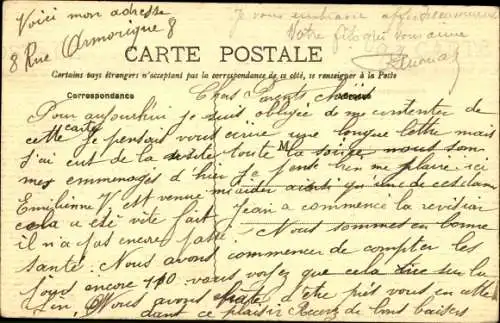 Voici mon adresse
8 Rue Armorique 8
Je vous embrasse affectueusement
Votre fille qui vous aime
CARTE POSTALE
Certains pays étrangers n'acceptant pas la correspondance de ce côté, se renseigner à la Poste
Correspondance
Chers Parents
Pour aujourd'hui je suis obligée de me contenter de
cette carte Je pensais vous écrire une longue lettre mais
j'ai eut de la visite toute la soirée nous som
M
mes emmenagés d'hier je pense bien me plaire ici
Emilienne V. est venue m'aider ainsi qu'une de ces dam
cela a été vite fait Jean a commencé la
il n'a pas encore fasse Nous sommes en bonne
santé. Nous avons commencer de compter les
jours encore 110 vous voyez que cela tire sur la
fin, Nous avons d'être près vous en cette
dant ce plaisir Recevez de bons baisers